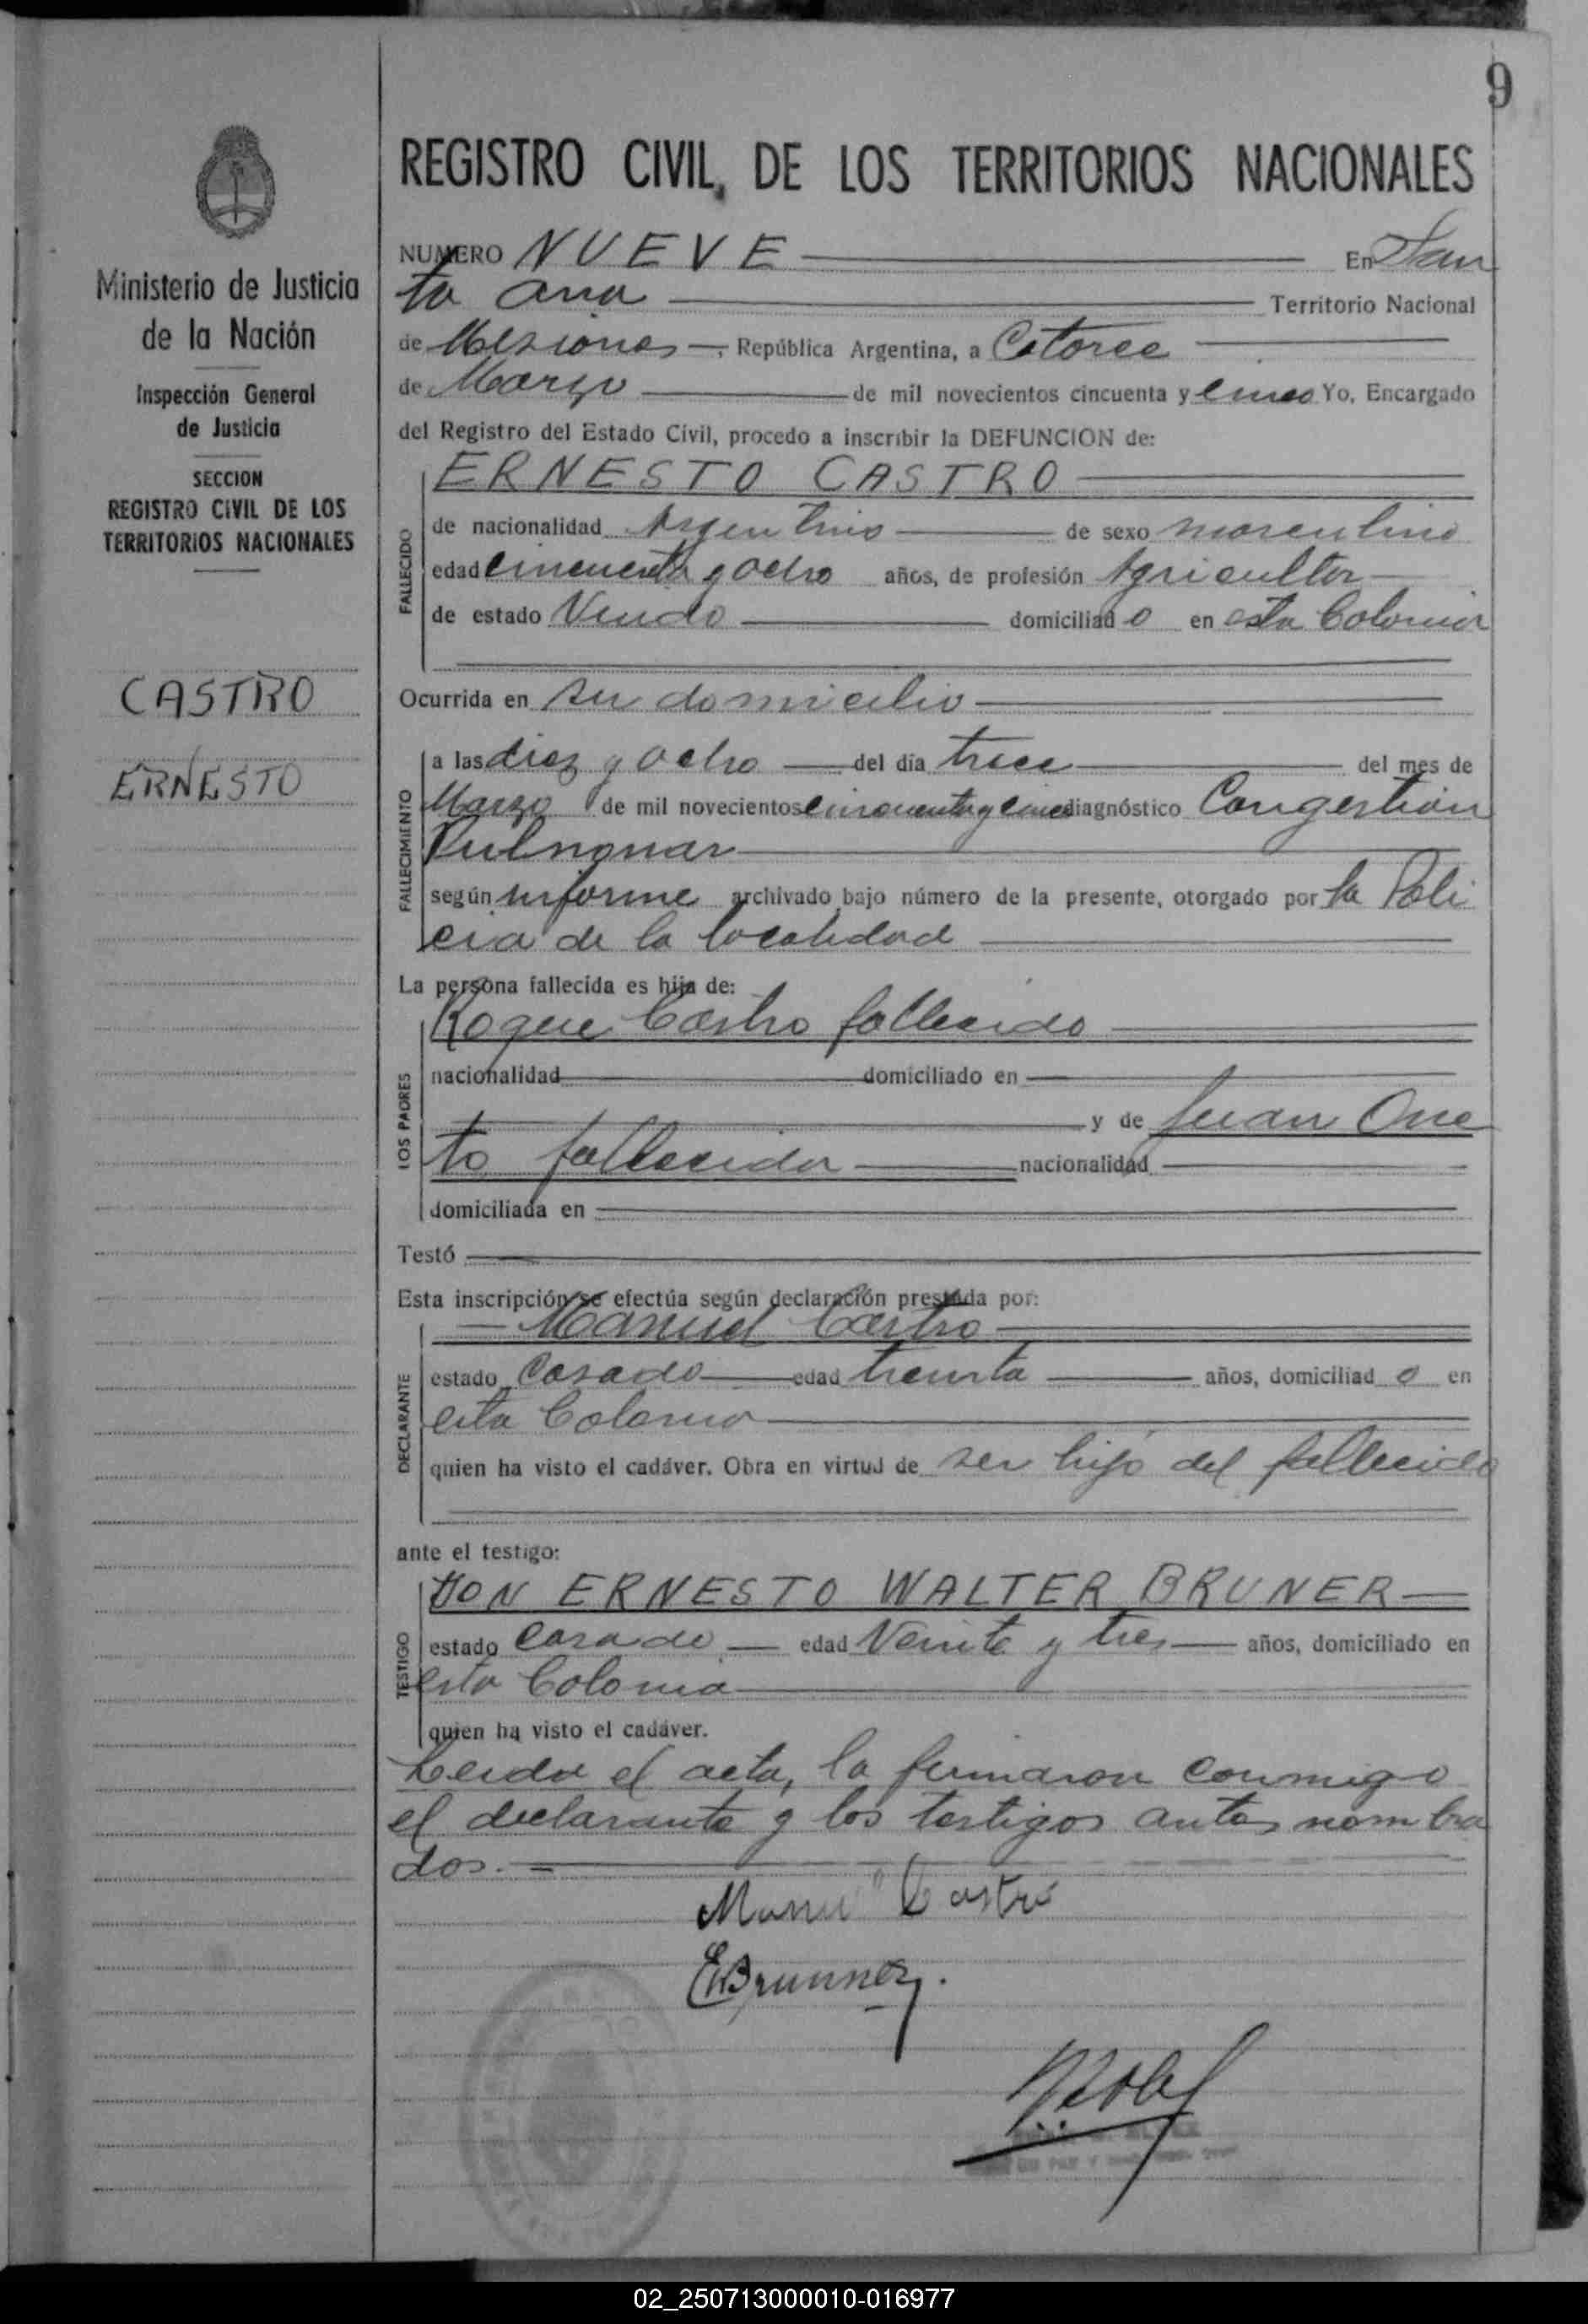 9
REGISTRO CIVIL DE LOS TERRITORIOS NACIONALES
Ministerio de Justicia
de la Nación
Inspección General
de Justicia
SECCION
REGISTRO CIVIL DE LOS
TERRITORIOS NACIONALES
CASTRO
ERNESTO
NUMERO NUEVE En San
ta Ana Territorio Nacional
de Misiones República Argentina, a Catorce
de Marzo de mil novecientos cincuenta y cinco Yo, Encargado
del Registro del Estado Civil, procedo a inscribir la DEFUNCION de:
ERNESTO CASTRO
FALLECIDO
de nacionalidad Argentino de sexo masculino
edad cincuenta y ocho años, de profesión Agricultor
de estado Viudo domiciliado en esta Colonia
Ocurrida en su domicilio
FALLECIMIENTO
a las diez y ocho del día trece del mes de
Marzo de mil novecientos cincuenta y cinco diagnóstico Congestión
Pulmonar
según informe archivado bajo número de la presente, otorgado por la Poli
cia de la localidad
La persona fallecida es hija de:
LOS PADRES
Roque Castro fallecido
nacionalidad domiciliado en
y de Juan One
to fallecida nacionalidad
domiciliada en
Testó
Esta inscripción se efectúa según declaración prestada por:
DECLARANTE
Manuel Castro
estado Casado edad treinta años, domiciliado en
esta Colonia
quien ha visto el cadáver. Obra en virtud de ser hijo del fallecido
ante el testigo:
TESTIGO
DON ERNESTO WALTER BRUNER
estado Casado edad Veinte y tres años, domiciliado en
esta Colonia
quien ha visto el cadáver.
Leida el acta, la firmaron conmigo
el declarante y los testigos antes nombra
dos.
Manuel Castro
EBrunner.
02_250713000010-016977